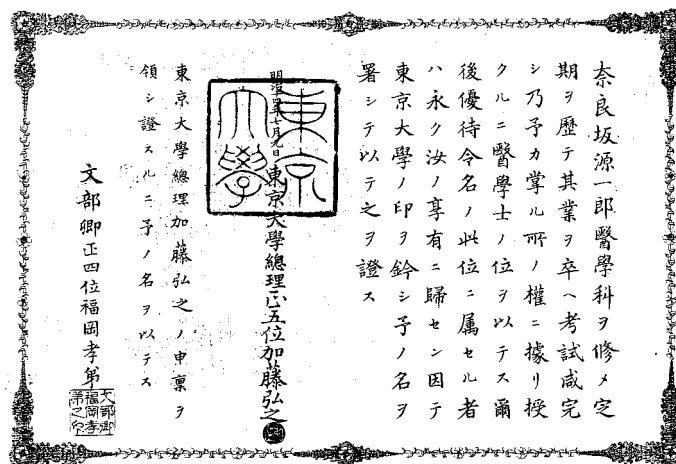 奈良坂源一郎醫學科ヲ修メ定
期ヲ歷テ其業ヲ卒ヘ考試咸完
シ乃予カ掌ル所ノ權ニ據リ授
クルニ醫學士ノ位ヲ以テス爾
後優待令名ノ此位ニ属セル者
ハ永ク汝ノ享有ニ歸セン因テ
東京大學ノ印ヲ鈐シ予ノ名ヲ
署シテ以テ之ヲ證ス
東京大學總理正五位加藤弘之
東京
大學
東京大學總理加藤弘之ノ申稟ヲ
領シ證スルニ予ノ名ヲ以テス
文部卿正四位福岡孝弟
文部卿
福岡孝
弟之印